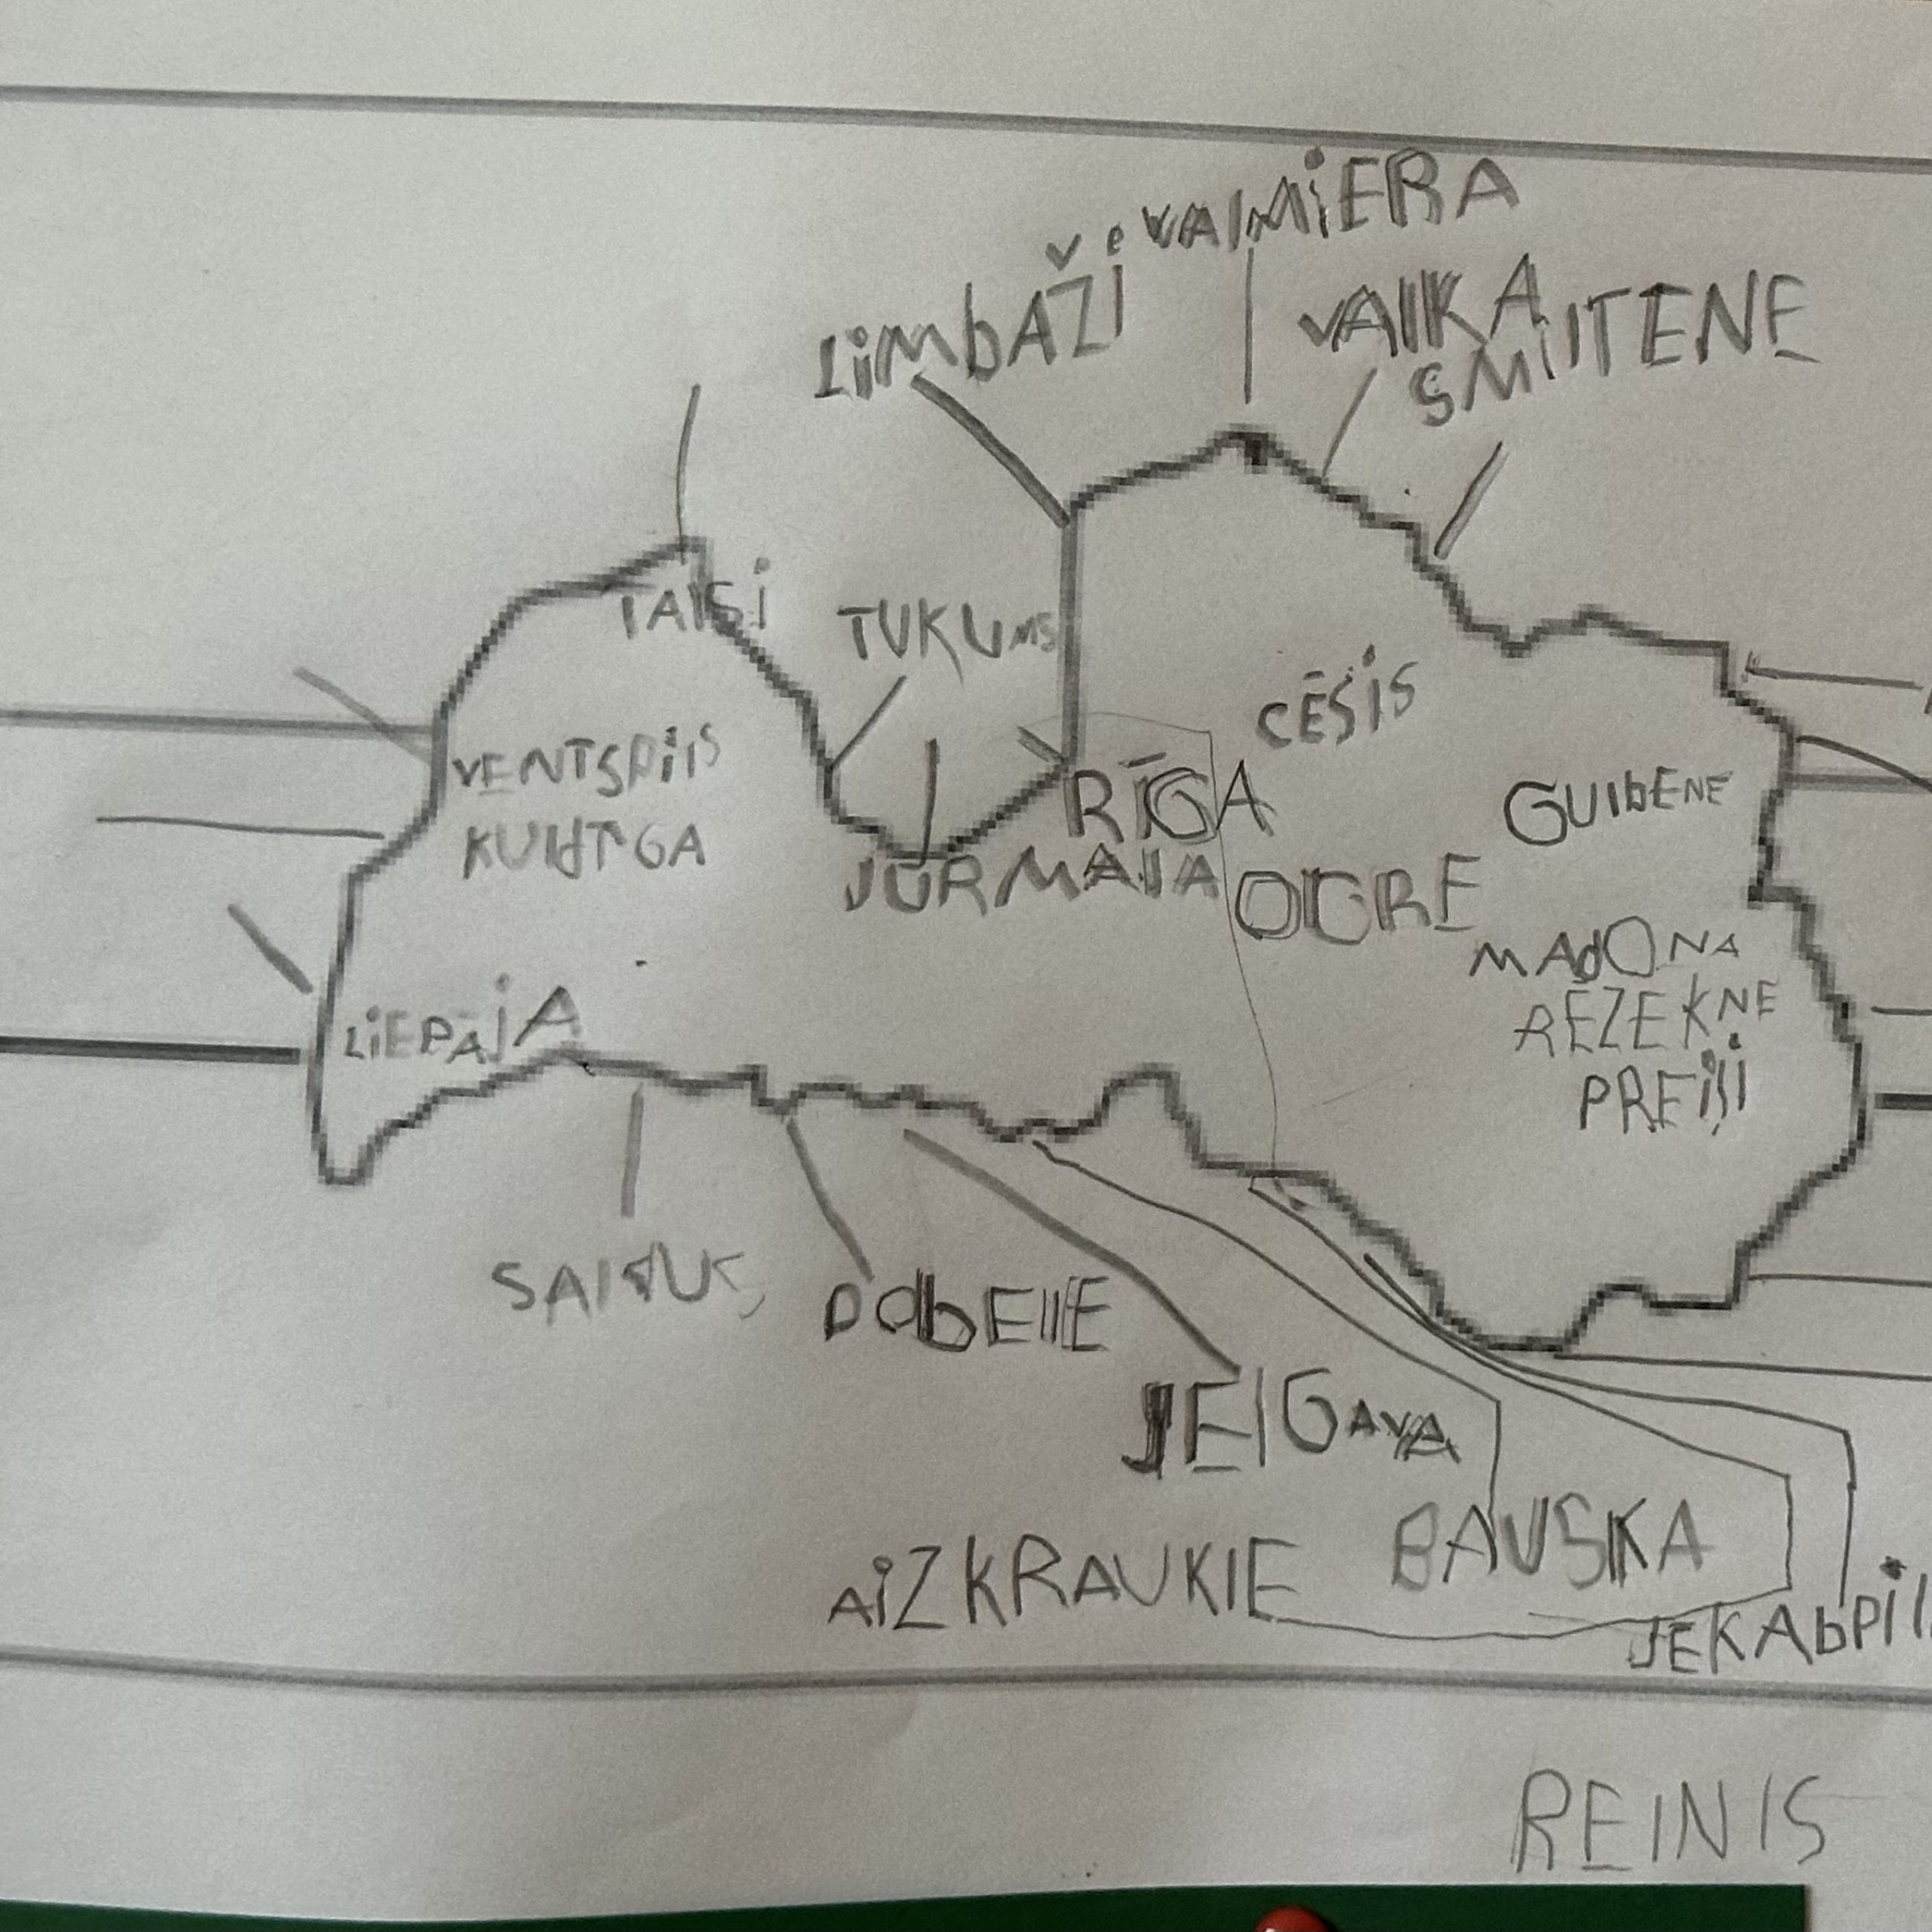 VAlMiERA
LiMbAŽi
VAlKA
SMilTENE
TAlSi
TUKUMS
CĒSiS
VENTSPilS
RĪGA
GUlbENE
KUldīGA
JŪRMAlA
OGRE
MAdONA
RĒZEKNE
LiEPĀJA
PREiļi
SAldUS
DObElE
JElGAVA
BAUSKA
AiZKRAUKlE
JEKAbPil
REINIS